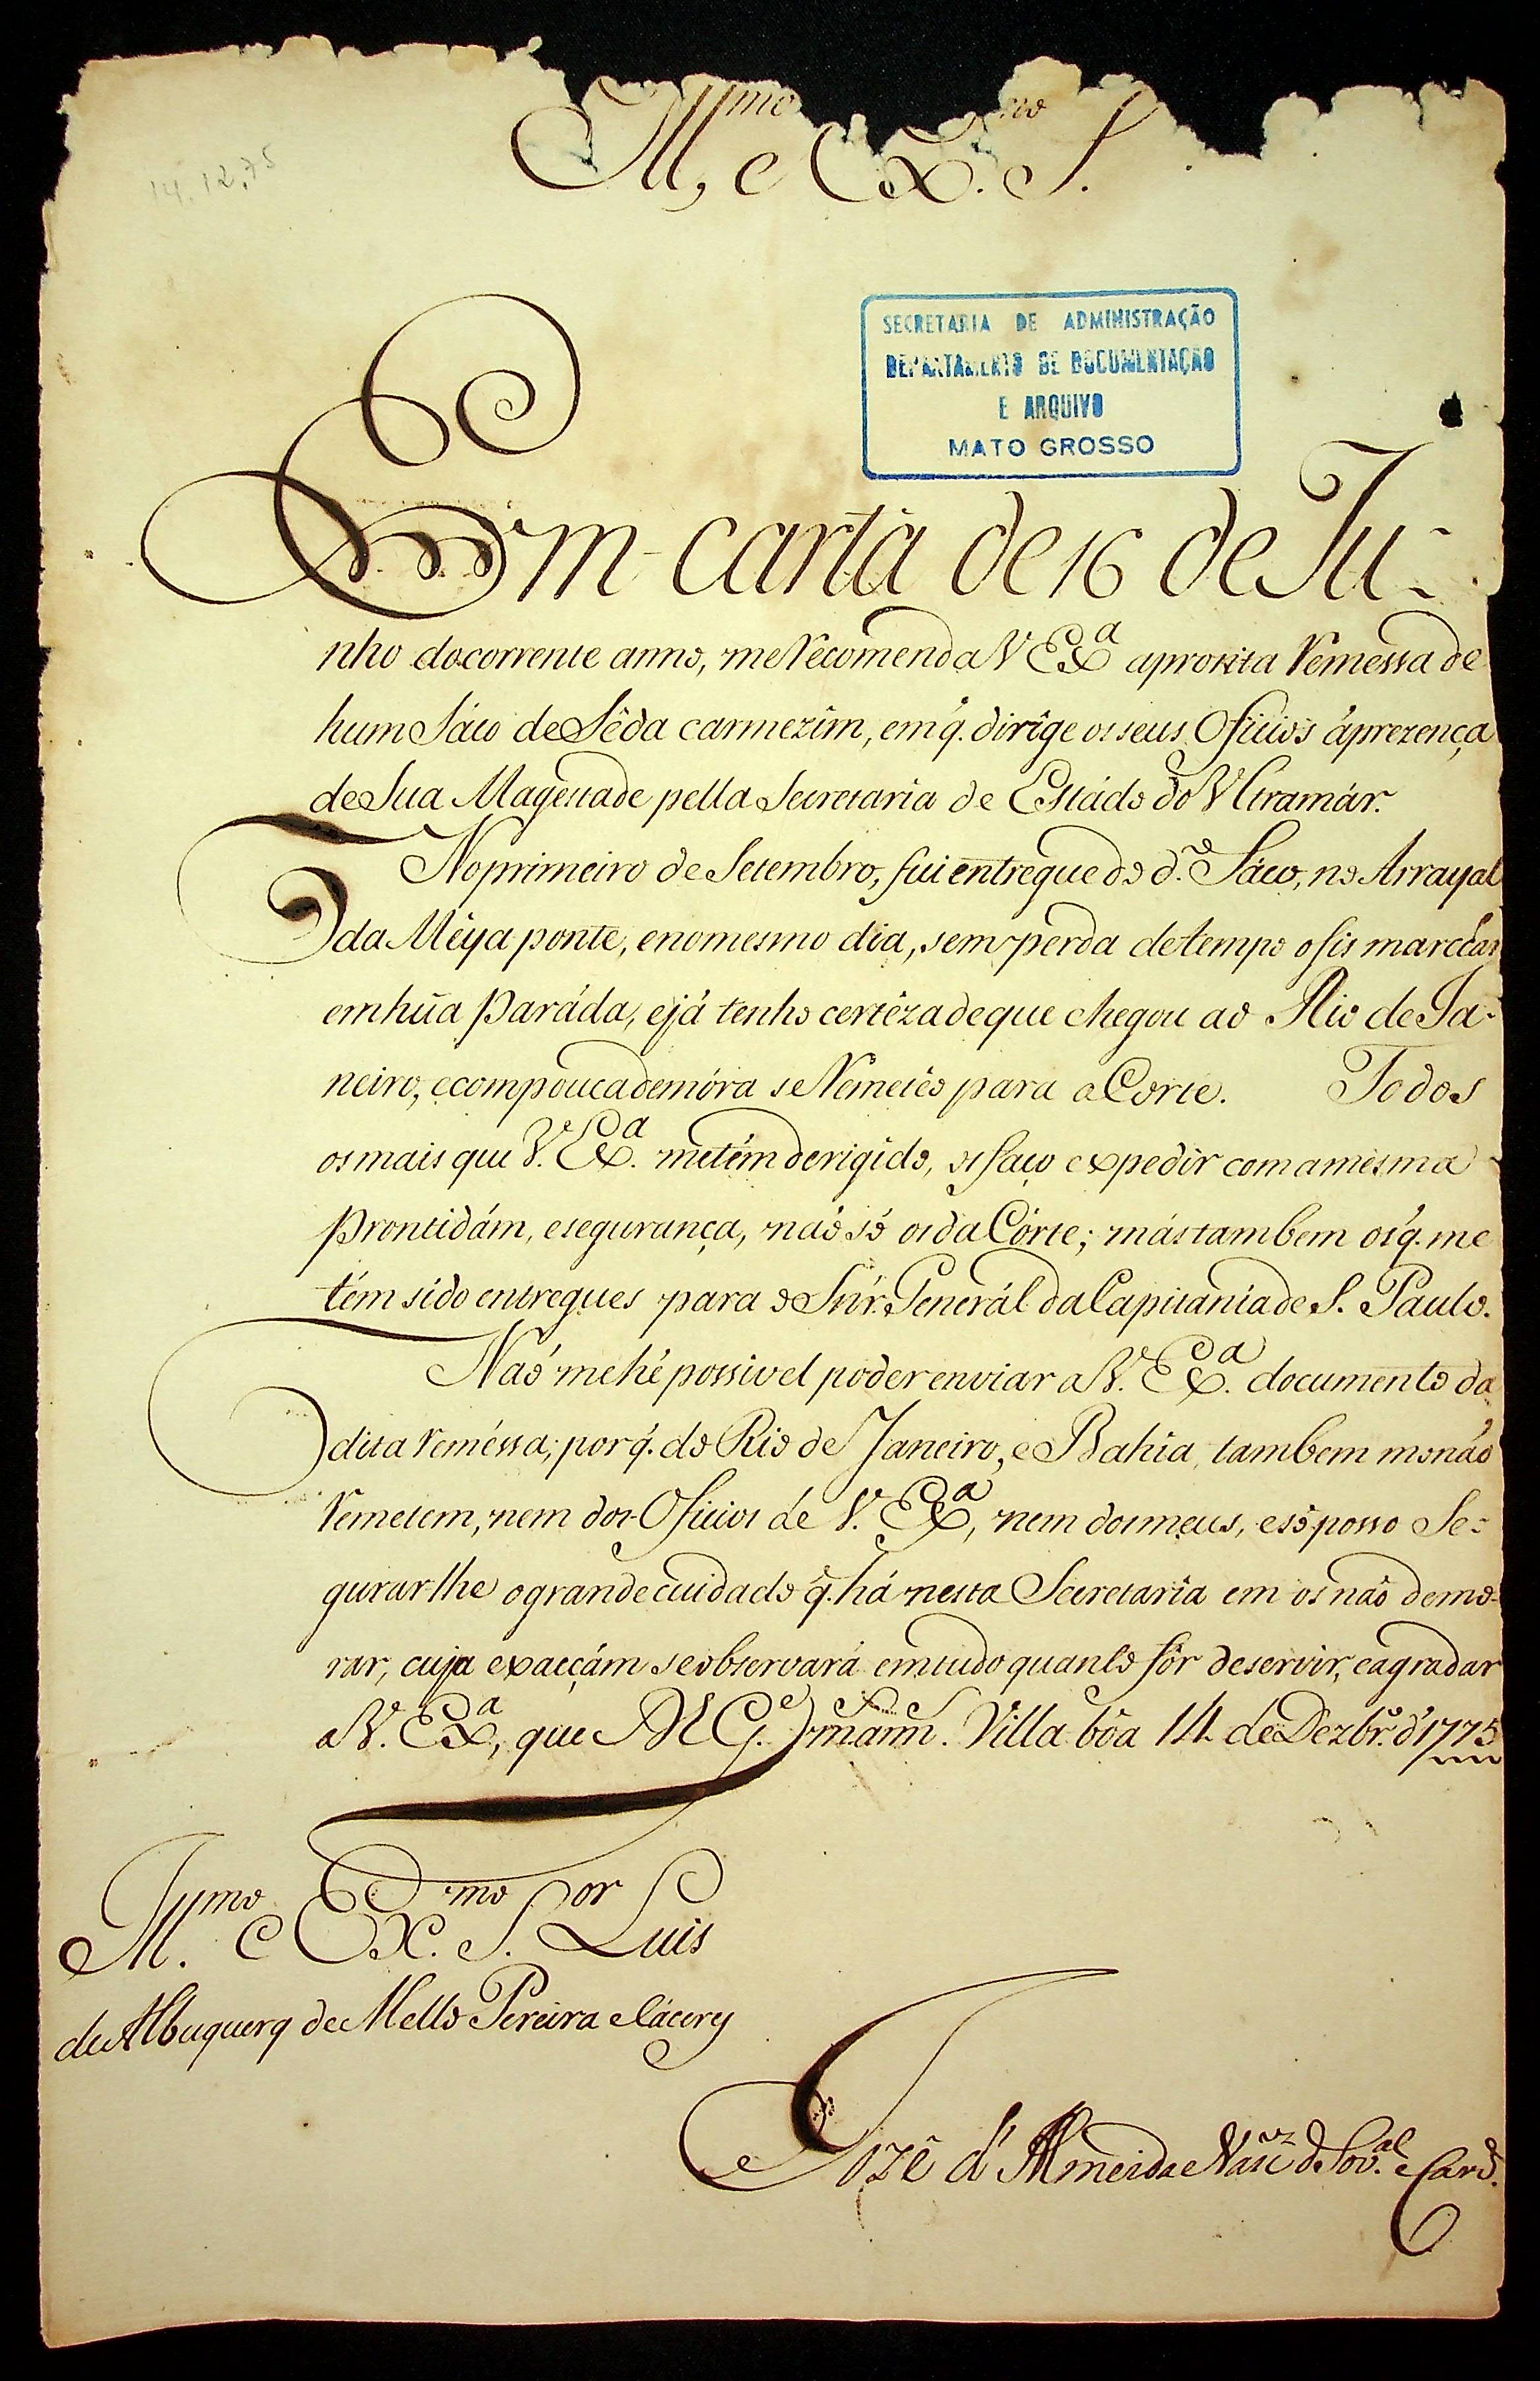 14.12.75
Illmo, e Exmo. S.
SECRETARIA DE ADMINISTRAÇÃO
DEPARTAMENTO DE DOCUMENTAÇÃO
E ARQUIVO
MATO GROSSO
Em carta de 16 de Ju-
nho docorrente anno, meRecomenda V Exa apronta Remessa de
hum Sáco de Sêda carmezim, emq̃. dirîge os seus Oficios áprezença
de Sua Magestade pella Secretaria de Estádo do Vltramár.
Noprimeiro de Setembro, fui entregue do d.o Sáco, no Arrayal
da Meya ponte, enomesmo dia, sem perda detempo ofis marchar
emhũa Paráda, ejá tenho certêzadeque chegou ao Rio de Ja-
neiro, ecompoucademóra seRemeteo para aCorte. Todos
osmais que V. Exa. metém derigido, os faço expedir comamesma
Prontidám, esegurança, naõ só osdaCôrte; mástambem osq̃. me
tém sido entregues para o Snr. Generál daCapitaniade S. Paulo.
Naõ mehé possivel poder enviar aV. Exa. documento da
dita Reméssa; porq̃. do Rio de Janeiro, e Bahia, tambem monáo
Remetem, nem dos Oficios de V. Exa, nem dosmeus, esó posso Se-
gurarlhe ograndecuidado q̃. há nesta Secretaria em os náo demo-
rar, cuja exacçám seobservará emtudo quanto fôr deservir, eagradar
aV. Exa, que D.s G.e m.s ann.s Villa bôa 14 de Dezbr.o d'1775
Illmo. e Exmo. S.or Luis
de Albuquerq de Mello Pereira eCáceres
Jozê d' Almeida eVasc.os de Sov.al e Carv.o